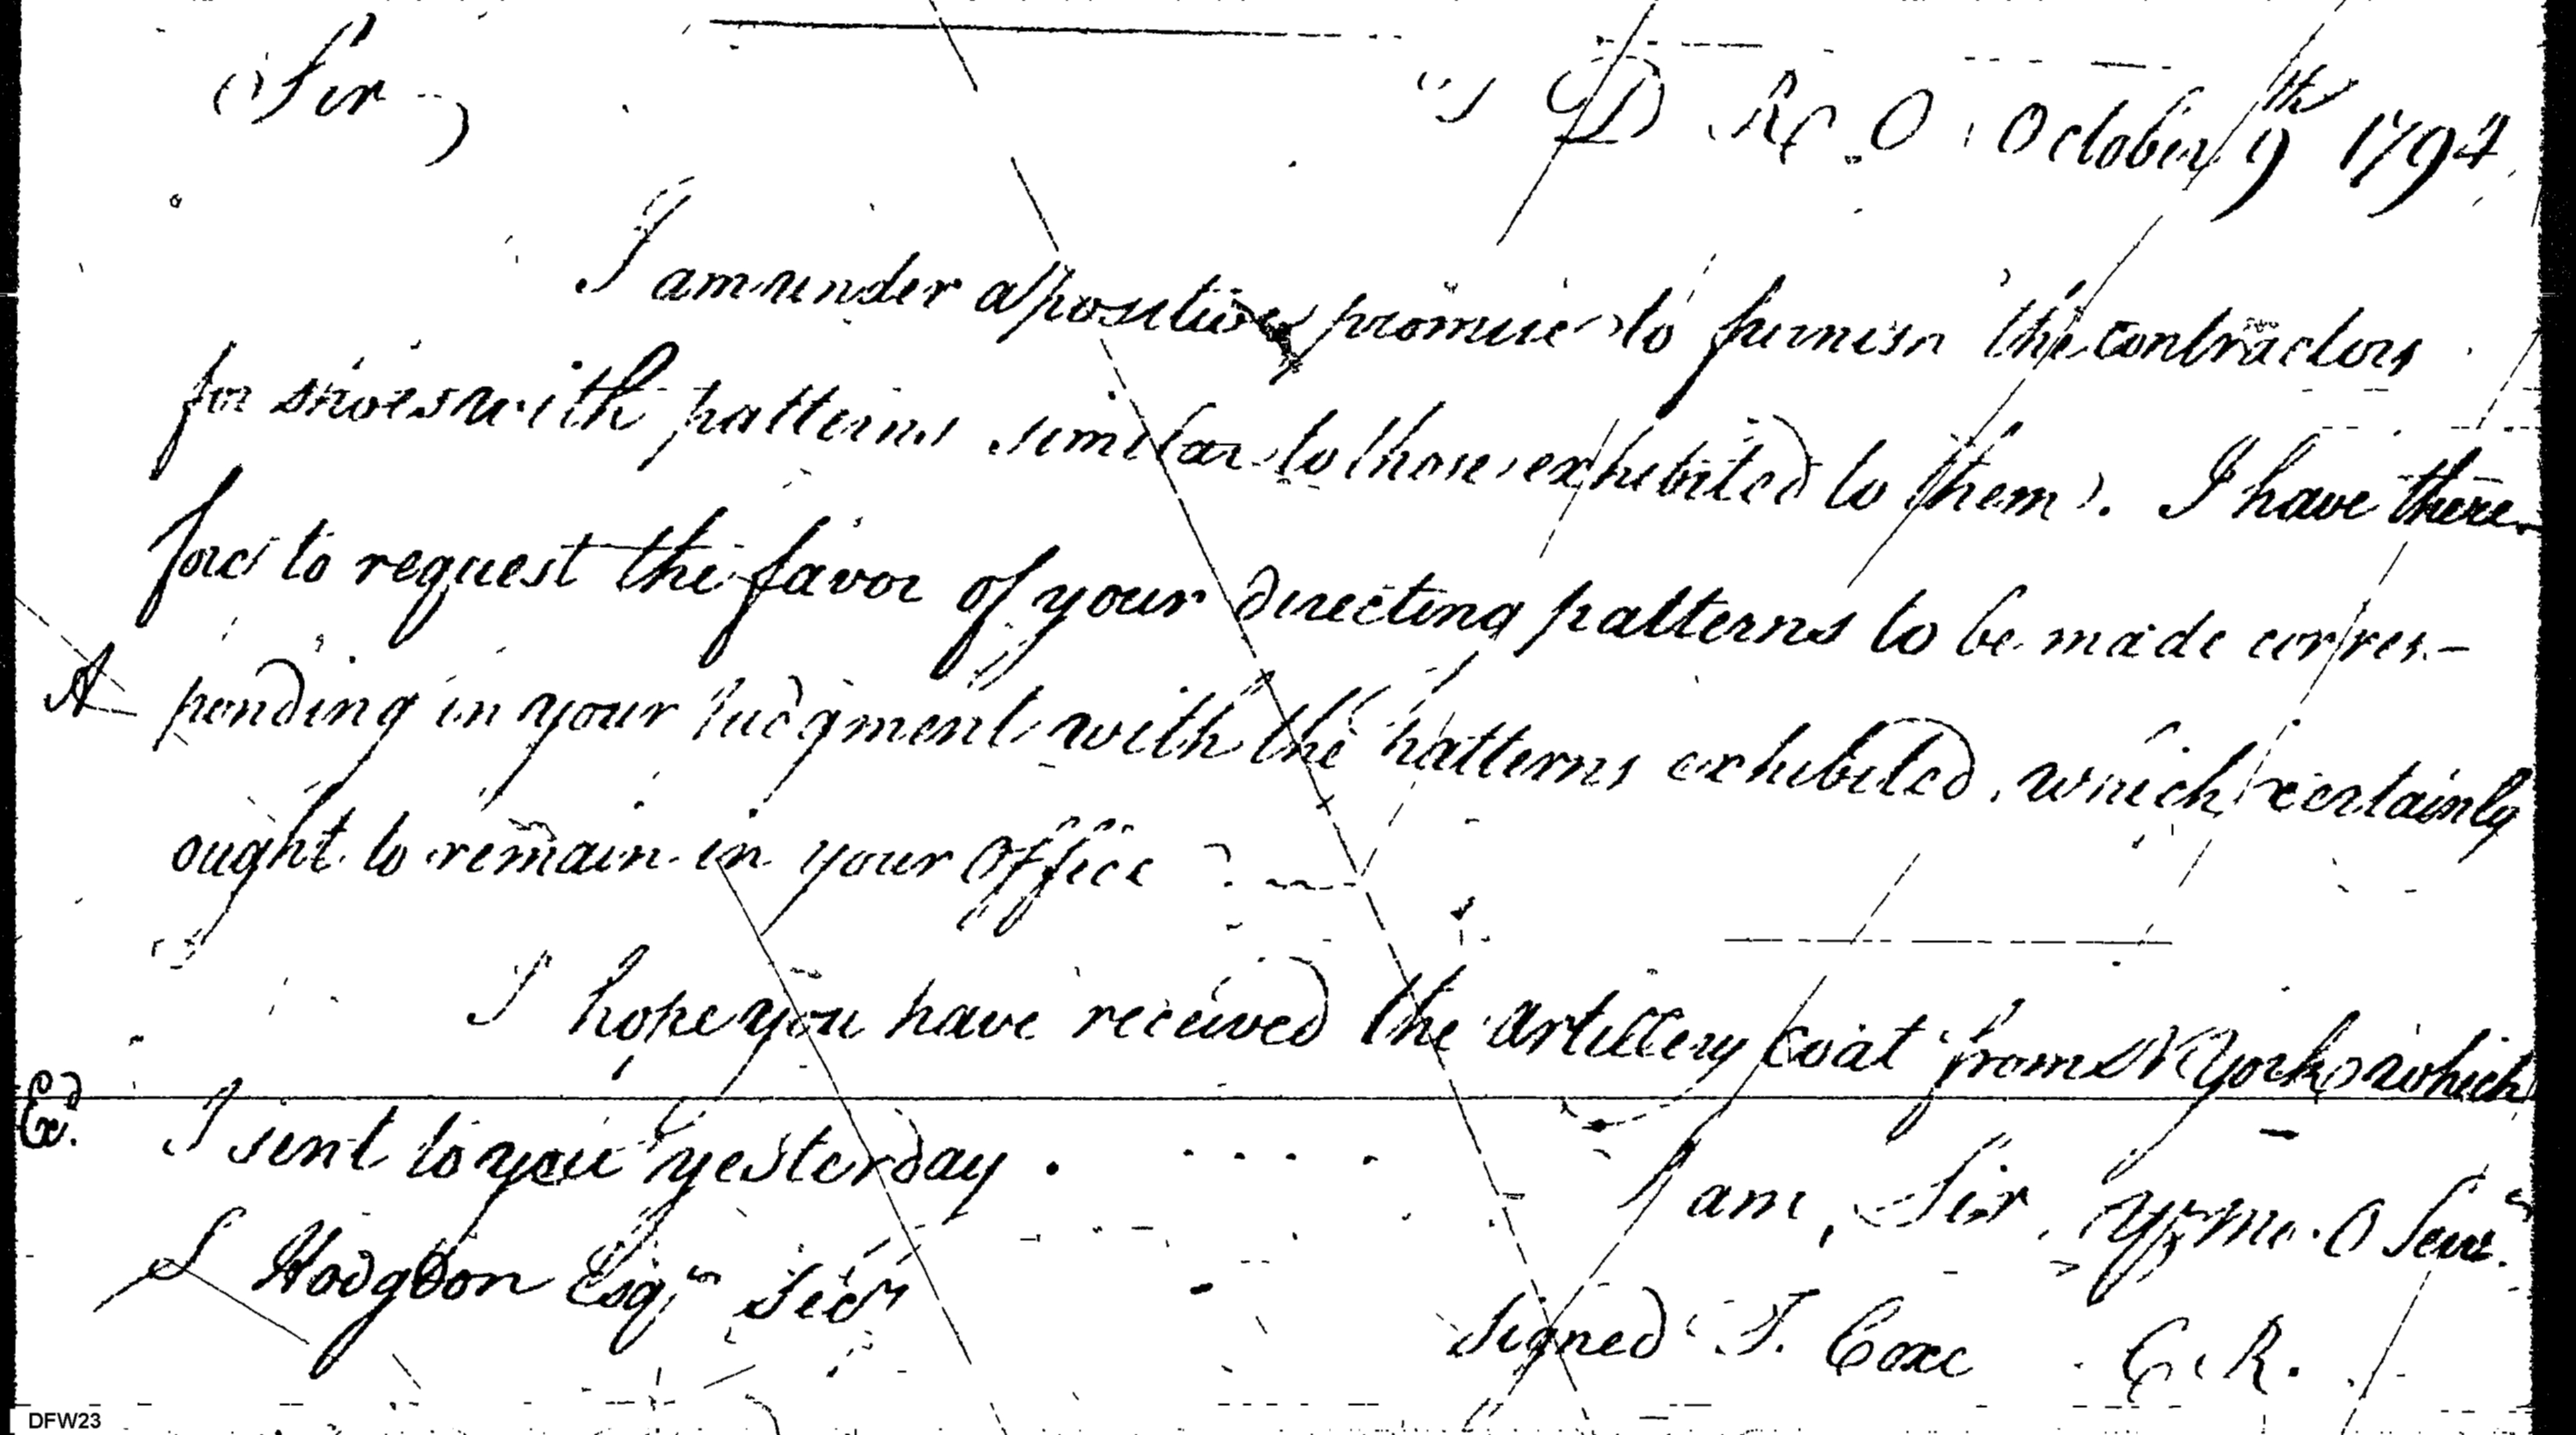 Sir,
T D R. O. October 9th 1794
I am under a positive promise to furnish the contractors
for shoes with patterns similar to those exhibited to them. I have there-
fore to request the favor of your directing patterns to be made corres-
A ponding in your Judgment with the patterns exhibited, which certainly
ought to remain in your Office.
I hope you have received the artillery Coat from N York which
Exd. I sent to you yesterday.
I am, Sir, Yr mo. O Servt.
S Hodgdon Esqr
signed T. Coxe C. R.
DFW23